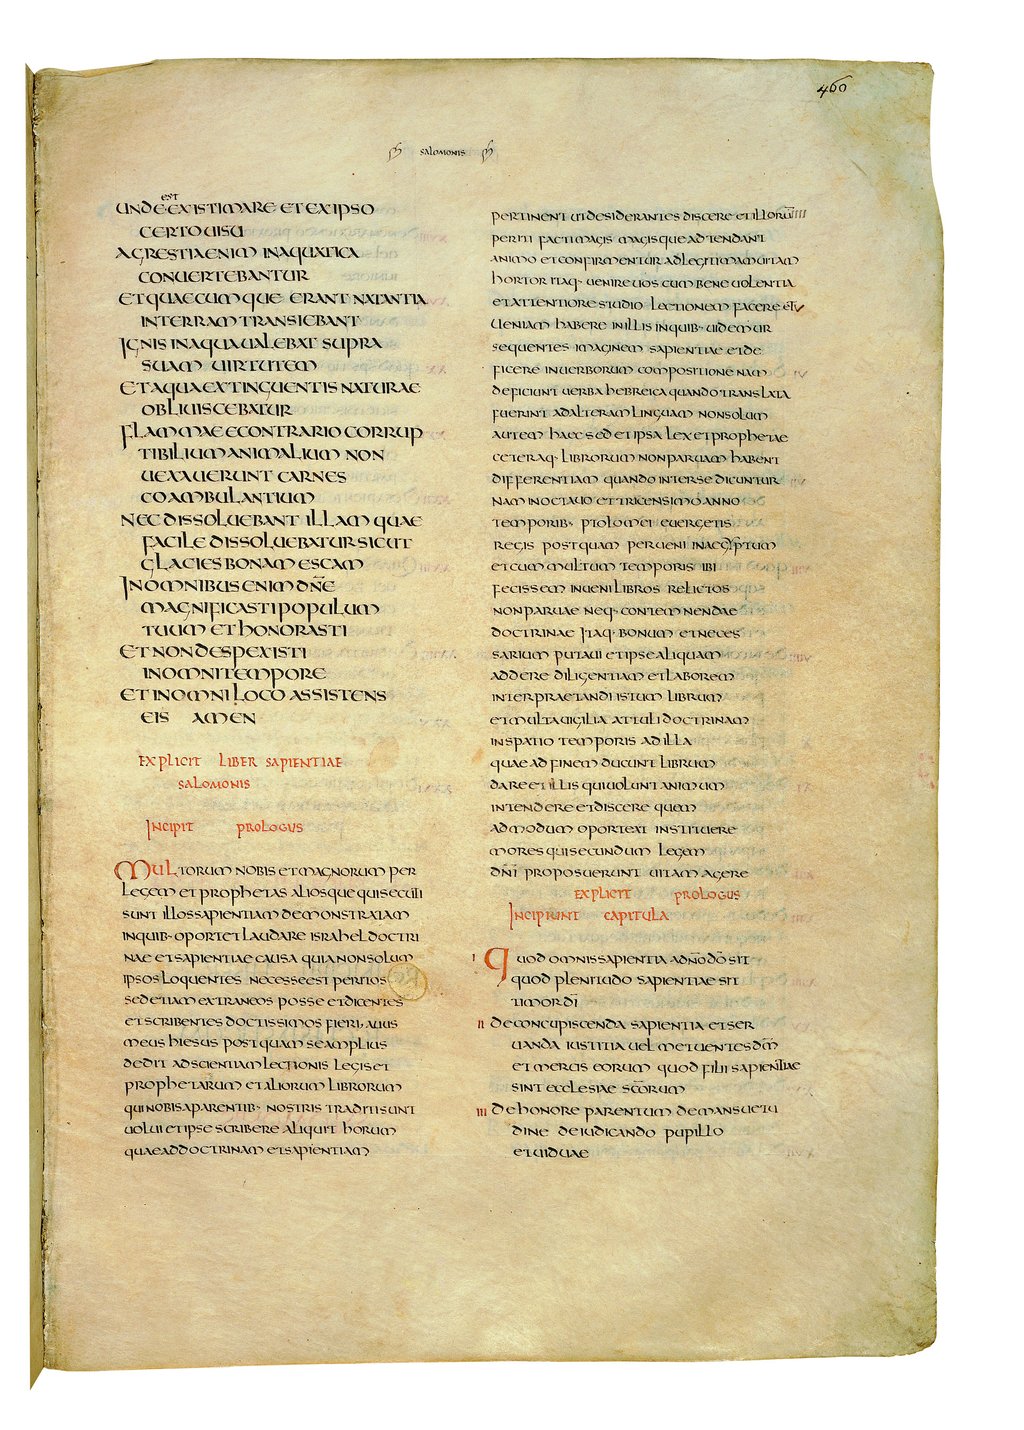 460
SALOMONIS
est
UNDE EXISTIMARE ET EX IPSO
CERTO UISU
AGRESTIA ENIM IN AQUATICA
CONUERTEBANTUR
ET QUAECUMQUE ERANT NATANTIA
IN TERRAM TRANSIEBANT
IGNIS IN AQUA UALEBAT SUPRA
SUAM UIRTUTEM
ET AQUA EXTINGUENTIS NATURAE
OBLIUISCEBATUR
FLAMMAE E CONTRARIO CORRUP
TIBILIUM ANIMALIUM NON
UEXAUERUNT CARNES
COAMBULANTIUM
NEC DISSOLUEBANT ILLAM QUAE
FACILE DISSOLUEBATUR SICUT
GLACIES BONAM ESCAM
IN OMNIBUS ENIM DN̄E
MAGNIFICASTI POPULUM
TUUM ET HONORASTI
ET NON DESPEXISTI
IN OMNI TEMPORE
ET IN OMNI LOCO ASSISTENS
EIS AMEN
EXPLICIT LIBER SAPIENTIAE
SALOMONIS
INCIPIT PROLOGUS
MULTORUM NOBIS ET MAGNORUM PER
LEGEM ET PROPHETAS ALIOSQUE QUI SECUTI
SUNT ILLOS SAPIENTIAM DEMONSTRATAM
IN QUIB· OPORTET LAUDARE ISRAHEL DOCTRI
NAE ET SAPIENTIAE CAUSA QUIA NON SOLUM
IPSOS LOQUENTES NECESSE EST PERITOS
SED ETIAM EXTRANEOS POSSE ET DICENTES
ET SCRIBENTES DOCTISSIMOS FIERI, AUUS
MEUS HIESUS POSTQUAM SE AMPLIUS
DEDIT AD SCIENTIAM LECTIONIS LEGIS ET
PROPHETARUM ET ALIORUM LIBRORUM
QUI NOBIS A PARENTIB· NOSTRIS TRADITI SUNT
UOLUI ET IPSE SCRIBERE ALIQUIT HORUM
QUAE AD DOCTRINAM ET SAPIENTIAM
PERTINENT UT DESIDERANTES DISCERE ET ILLORŪ
PERITI FACTI MAGIS MAGISQUE ADTENDANT
ANIMO ET CONFIRMENTUR AD LEGITIMAM UITAM
HORTOR ITAQ· UENIRE UOS CUM BENEUOLENTIA
ET ATTENTIORE STUDIO LECTIONEM FACERE ET
UENIAM HABERE IN ILLIS IN QUIB· UIDEMUR
SEQUENTES IMAGINEM SAPIENTIAE ET DE
FICERE IN UERBORUM COMPOSITIONE NAM
DEFICIUNT UERBA HEBREICA QUANDO TRANSLATA
FUERINT AD ALTERAM LINGUAM NON SOLUM
AUTEM HAEC SED ET IPSA LEX ET PROPHETAE
CETERAQ· LIBRORUM NON PARUAM HABENT
DIFFERENTIAM QUANDO INTER SE DICUNTUR
NAM IN OCTAUO ET TRICENSIMO ANNO
TEMPORIB· PTOLOMEI EUERGETIS
REGIS POSTQUAM PERUENI IN AEGYPTUM
ET CUM MULTUM TEMPORIS IBI
FECISSEM INUENI LIBROS RELICTOS
NON PARUAE NEQ· CONTEMNENDAE
DOCTRINAE ITAQ· BONUM ET NECES
SARIUM PUTAUI ET IPSE ALIQUAM
ADDERE DILIGENTIAM ET LABOREM
INTERPRAETANDI ISTUM LIBRUM
ET MULTA UIGILIA ATTULI DOCTRINAM
IN SPATIO TEMPORIS AD ILLA
QUAE AD FINEM DUCUNT LIBRUM
DARE ET ILLIS QUI UOLUNT ANIMUM
INTENDERE ET DISCERE QUEM
AD MODUM OPORTEAT INSTITUERE
MORES QUI SECUNDUM LEGEM
DN̄I PROPOSUERUNT UITAM AGERE
EXPLICIT PROLOGUS
INCIPIUNT CAPITULA
I QUOD OMNIS SAPIENTIA A DN̄O DŌ SIT
QUOD PLENITUDO SAPIENTIAE SIT
TIMOR DĪ
II DE CONCUPISCENDA SAPIENTIA ET SER
UANDA IUSTITIA UEL METUENTES DM̄
ET MERCIS EORUM QUOD FILII SAPIENTIAE
SINT ECCLESIAE SC̄ORUM
III DE HONORE PARENTUM DE MANSUETU
DINE DE IUDICANDO PUPILLO
ET UIDUAE